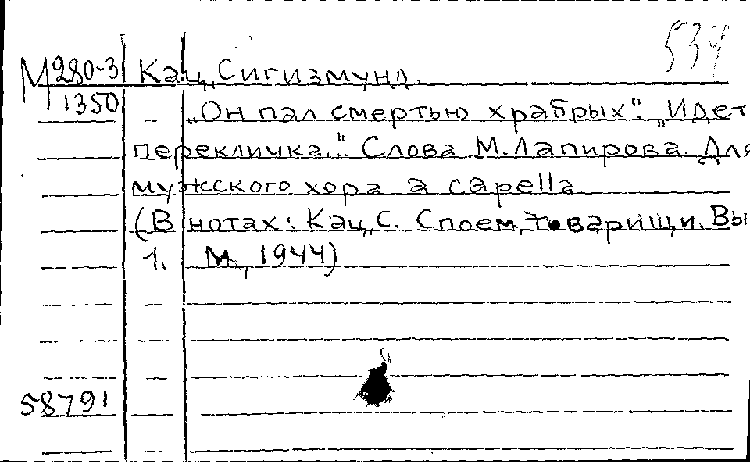 534
М280-3 Кац, Сигизмунд.
1350 „Он пал смертью храбрых". „Идет
перекличка." Слова М. Лапирова. Для
мужского хора a capella
(В нотах: Кац, С. Споем, товарищи. Вы
1. М., 1944)
58791